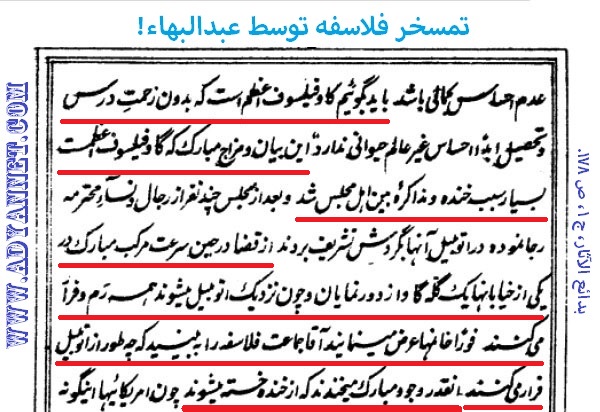 تمسخر فلاسفه توسط عبدالبهاء!
عدم احساس کمالی باشد باید بگوئیم گاو فیلسوف اعظم است که بدون زحمت درس
و تحصیل ابدًا احساس غیر عالم حیوانی ندارد" این بیان و مزاج مبارک که گاو فیلسوف اعظمست
بسیار سبب خنده و مذاکرهٔ بین اهل مجلس شد و بعد از مجلس چند نفر از رجال و نسآء محترمه
رجا نموده در اتومبیل آنها بگردش تشریف بردند از قضا در حین سرعت مرکب مبارک در
یکی از خیابانها یک گله گاو از دور نمایان و چون نزدیک اتومبیل میشوند همه رم و فرار
می کنند فورًا خانمها عرض مینمایند آقا جماعت فلاسفه را ببینید که چه طور از اتومبیل
فرار می کنند انقدر وجود مبارک میخندند که از خنده خسته میشوند چون امریکائیها اینگونه
WWW.ADYANNET.COM
بدائع الآثار، ج ۱، ص ۱۷۸.